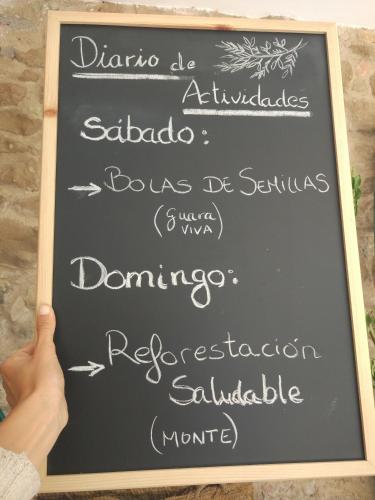 Diario de
Actividades
Sábado:
→ BOLAS DE SEMILLAS
(Guara
VIVA)
Domingo:
→ Reforestación
Saludable
(MONTE)